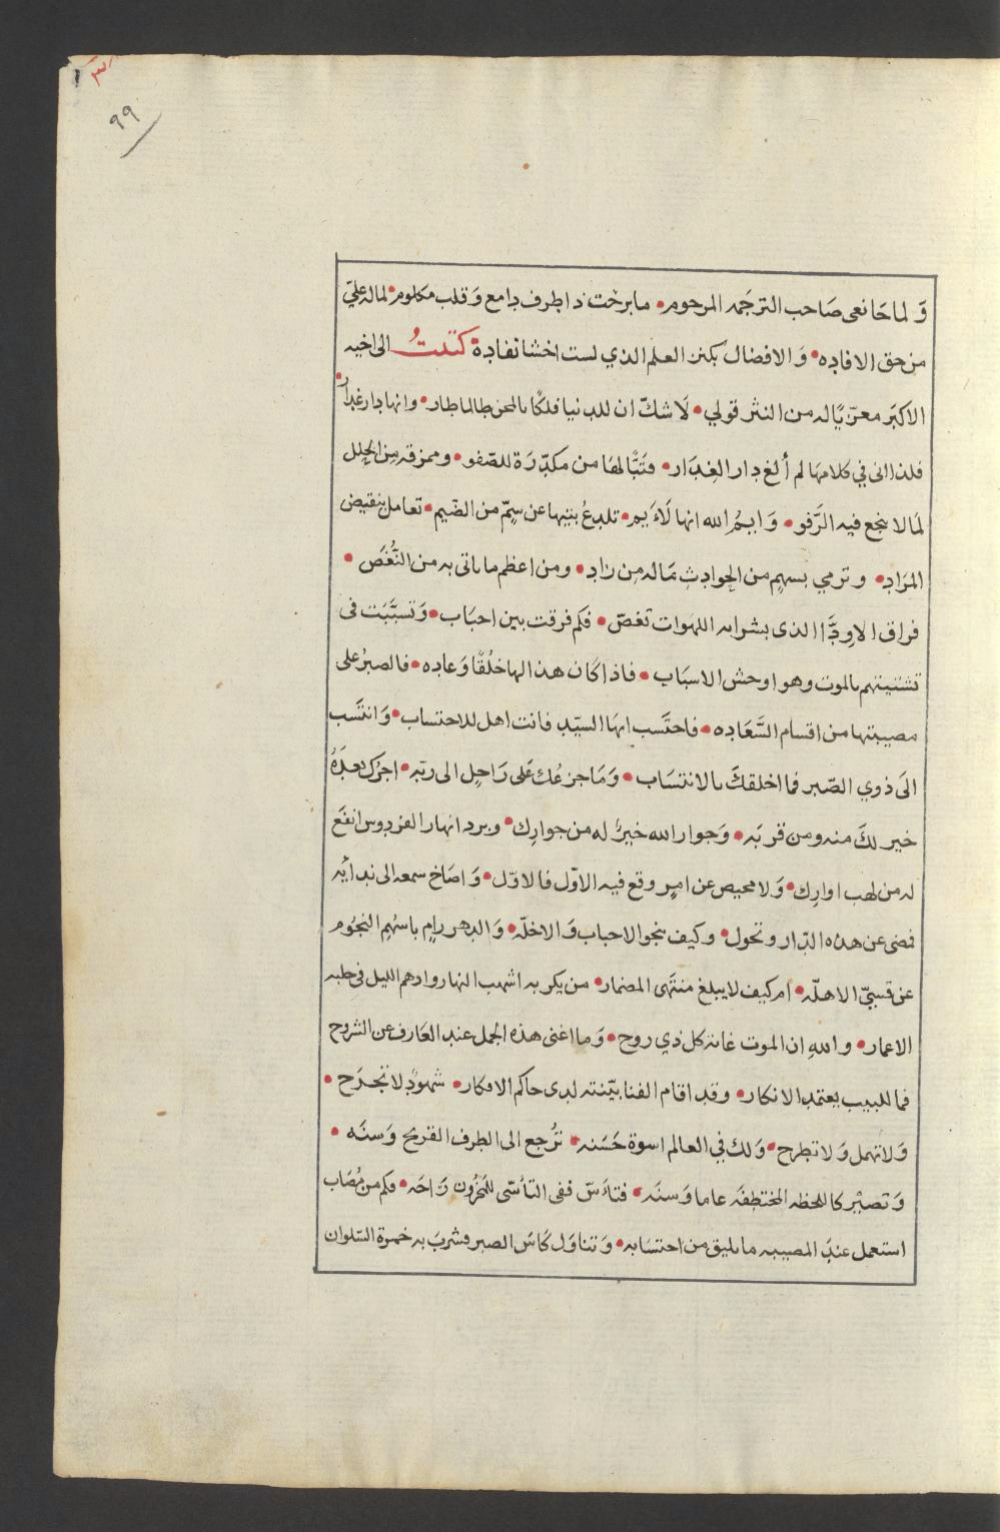 ٩٩
وَلما حَانعى صَاحب الترجَمه المرحوم • ما برحْت ذا طرف دامع وَقلب مكلوم • لماله علىّ
من حق الافاده • وَالافضال بكنز العلم الذي لست اخشا نفاده • كتبتُ الى اخيه
الاكبر معزيًا له من النثر قولي • لَا شكّ ان للدنيا فلكًا بالمحن طالما طار • وانها دار غدار
فلذا انى في كلامها لم أُلغ دار الغدَار • فتَبًّا لهَا من مكدّرَة للصّفو • وممزقه من الحِلل
لمَا لا ينجع فيه الرَّفو • وَايمُ الله انها لَاءَيم • تلدغُ بنيها عن سِمّ من الضّيم • تعامل بنقيض
المرَاد • وترمي بسهمٍ من الحوادثِ مَاله مِن رَاد • ومن اعظم ما ياتى به من النُّغَص •
فراق الاودَّا الذى بشرابه اللهوات تغصّ • فكم فرقت بين احبَاب • وَتسبَّبَت فى
تشتيتهم بالموت وهو اوحش الاسبَاب • فاذا كان هذا لها خلُقًا وَعاده • فالصبرُ على
مصيبتها من اقسام السَّعَاده • فاحتَسب ايهَا السيّد فانت اهل للاحتساب • وَانتَسب
الىَ ذوي الصّبر فما اخلقكَ بالانتسَاب • وَمَا جزعُك عَلى رَاحِل الى ربّه • اجرُك بعدَهُ
خير لكَ منه ومن قربَه • وَجوار الله خيرٌ له من جوارِك • وبرد انهار الفردوس انفَع
له من لهب اوارِك • وَلا محيص عن امرٍ وقع فيه الاوّل فالاوّل • وَاصَاخ سمعه الى ندائه
فضى عن هذه الدّار وتحول • وكيف ينجو الاحباب وَالاخلّه • وَالدهر رامٍ باسهُم النجوُم
عن قسيّ الاهلّه • ام كيف لا يبلغ منتهَى المضمار • من يكر به اشهب النهار وادهم الليل فى حلبه
الاعمار • واللهِ ان الموت غاية كل ذي روح • وَما اغنى هذه الجمل عند العَارف عن الشروح
فما للبيب يعتمد الانكار • وقد اقام الفنا بيّنته لدى حاكم الافكار • شهودٌ لا تجرَح •
وَلا تهمل وَلا تطرح • وَلك في العالم اسوة حَسَنه • تُرجع الى الطرف القريح وَسنَه •
وَتصيّر كاللحظه المختطفَه عاما وَسنَه • فتاءَسّ ففى التأسّى للمَحزُون رَاحَه • فكم من مُصَاب
استعمل عندَ المصيبه ما يليق من احتسَابه • وَتناوَل كاسَ الصبر فشربَ به خمرة السّلوان